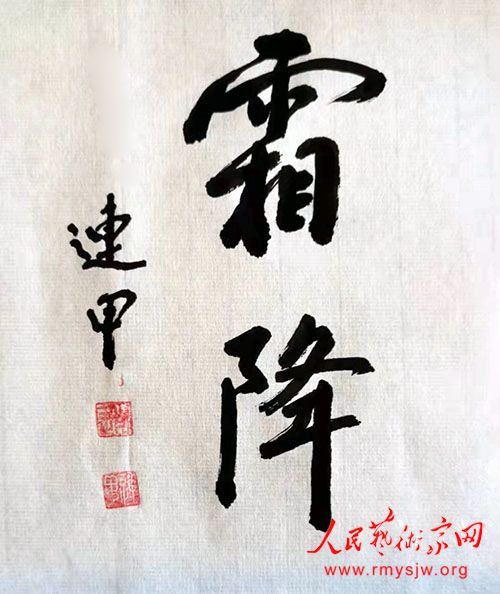 霜降
連甲
人民藝術家网
www.rmysjw.org